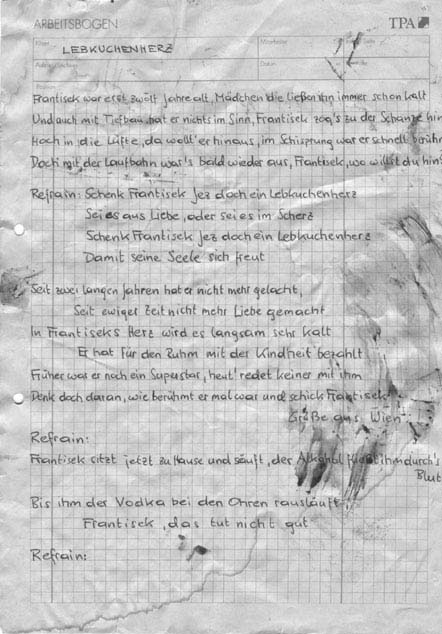 ARBEITSBOGEN
TPA
LEBKUCHENHERZ
Frantisek war erst zwölf Jahre alt, Mädchen die ließen ihn immer schon kalt
Und auch mit Tiefbau hat er nichts im Sinn, Frantisek zog's zu der Schanze hin
Hoch in die Lüfte, da wollt' er hinaus, im Schisprung war er schnell berühmt
Doch mit der Laufbahn war's bald wieder aus, Frantisek, wo willst du hin?
Refrain: Schenk Frantisek jez doch ein Lebkuchenherz
Sei es aus Liebe, oder sei es im Scherz
Schenk Frantisek jez doch ein Lebkuchenherz
Damit seine Seele sich freut
Seit zwei langen Jahren hat er nicht mehr gelacht,
Seit ewiger Zeit nicht mehr Liebe gemacht
In Frantiseks Herz wird es langsam sehr kalt
Er hat für den Ruhm mit der Kindheit bezahlt
Früher war er noch ein Superstar, heut' redet keiner mit ihm
Denk doch daran, wie berühmt er mal war und schick Frantisek
Grüße aus Wien
Refrain:
Frantisek sitzt jetzt zu Hause und säuft, der Alkohol fließt ihm durch's
Blut
Bis ihm der Vodka bei den Ohren rausläuft
Frantisek, das tut nicht gut
Refrain: